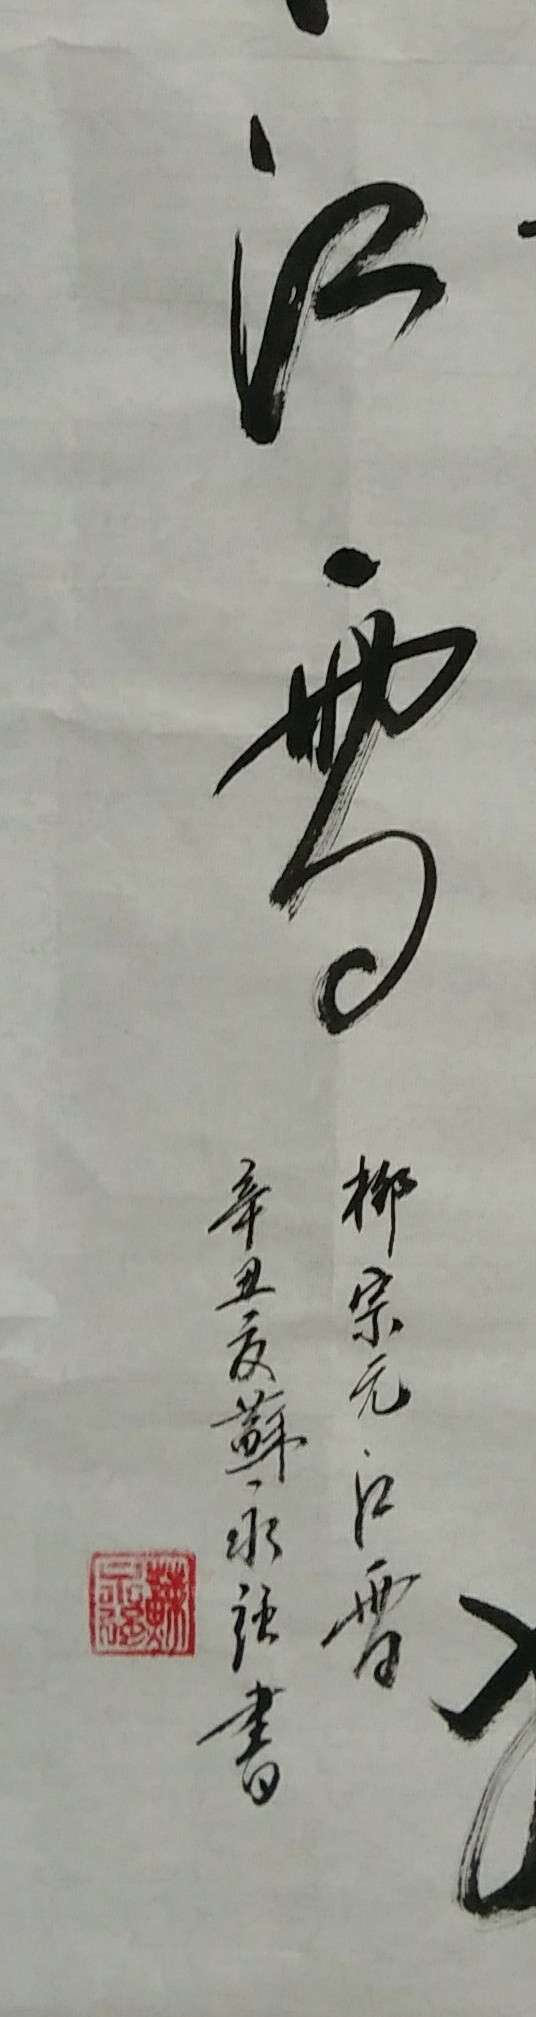 江雪
柳宗元江雪
辛丑夏蘇永强書